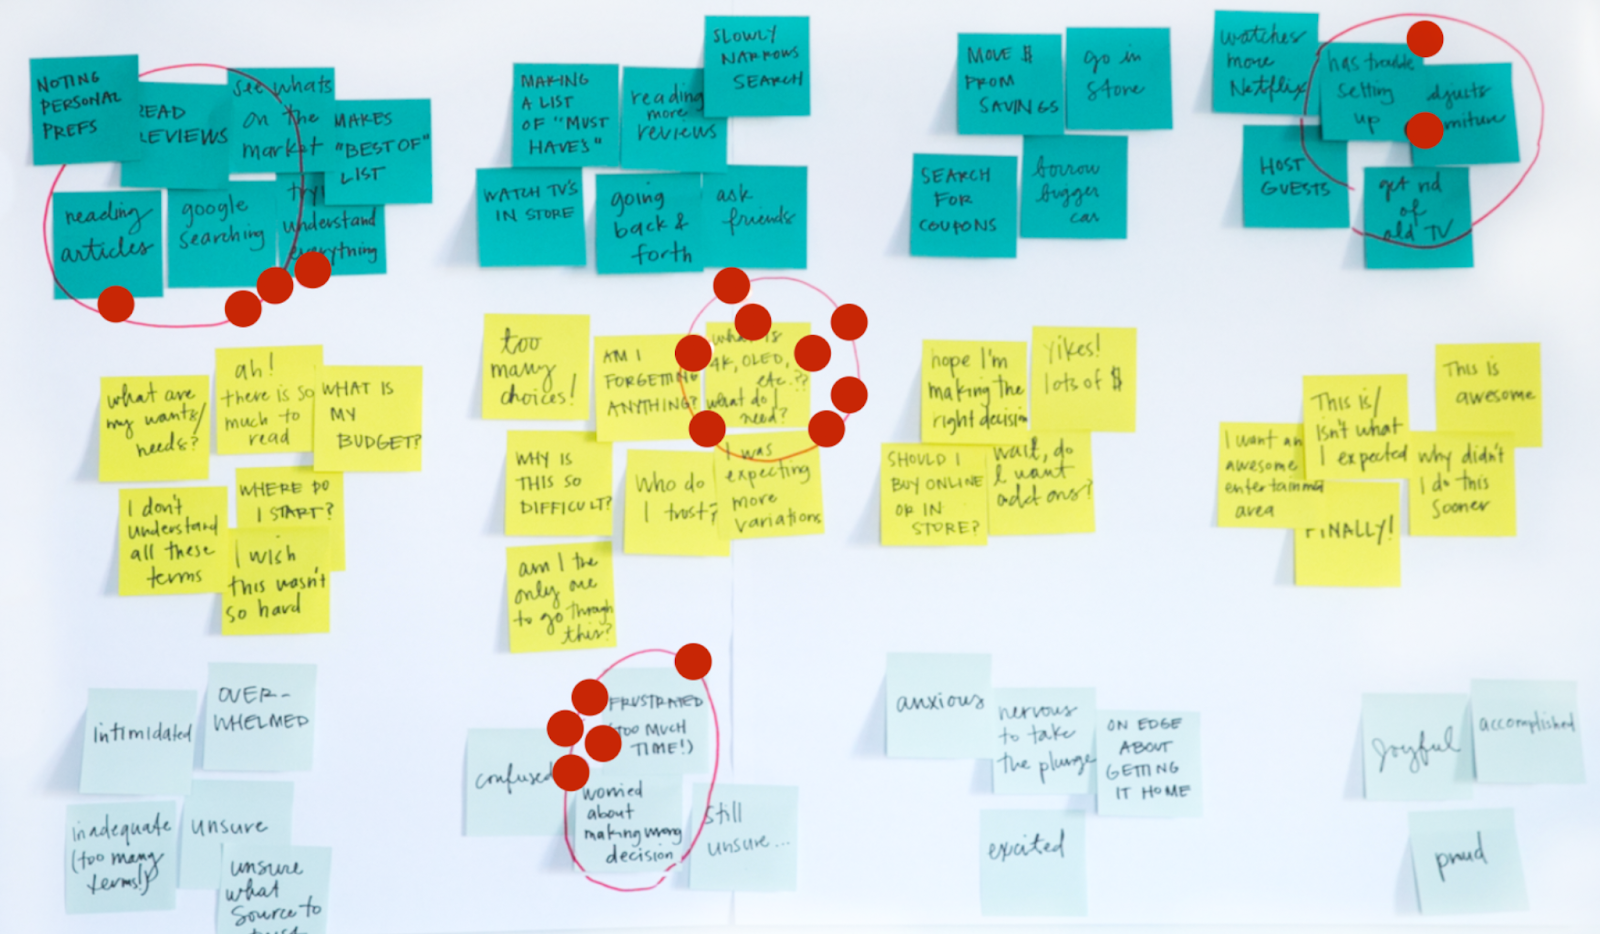 NOTING
PERSONAL
PREFS
READ
REVIEWS
see whats
on the
market
MAKES
"BEST OF"
LIST
reading
articles
google
searching
understand
everything
MAKING
A LIST
OF "MUST
HAVE'S"
reading
more
reviews
SLOWLY
NARROWS
SEARCH
WATCH TV'S
IN STORE
going
back &
forth
ask
friends
MOVE $
FROM
SAVINGS
go in
store
SEARCH
FOR
COUPONS
borrow
bigger
car
watches
more
Netflix
has trouble
setting
up
HOST
GUESTS
get rid
of
old TV
what are
my wants/
needs?
ah!
there is so
much to
read
WHAT IS
MY
BUDGET?
I don't
understand
all these
terms
WHERE DO
I START?
I wish
this wasn't
so hard
too
many
choices!
AM I
FORGETTING
ANYTHING?
what is
4K, OLED,
etc.??
what do I
need?
WHY IS
THIS SO
DIFFICULT?
who do
I trust?
I was
expecting
more
variations
am I the
only one
to go through
this?
hope I'm
making the
right decision
yikes!
lots of $
SHOULD I
BUY ONLINE
OR IN
STORE?
wait, do
I want
add ons?
I want an
awesome
entertainment
area
This is/
Isn't what
I expected
This is
awesome
why didn't
I do this
sooner
FINALLY!
intimidated
OVER-
WHELMED
inadequate
(too many
terms!)
unsure
unsure
what
source to
confused
FRUSTRATED
(TOO MUCH
TIME!)
worried
about
making wrong
decision
still
unsure...
anxious
nervous
to take
the plunge
ON EDGE
ABOUT
GETTING
IT HOME
excited
joyful
accomplished
proud